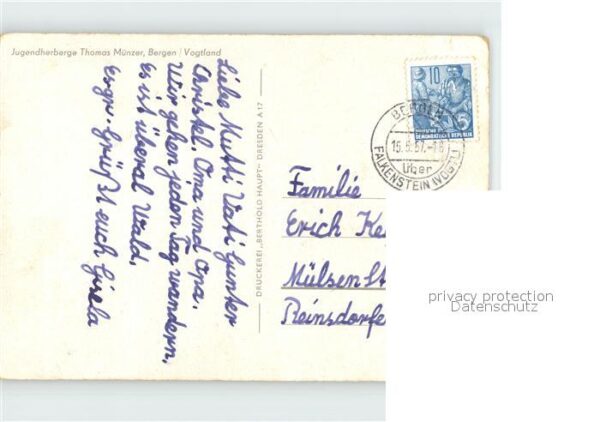 Jugendherberge Thomas Münzer, Bergen / Vogtland
Liebe Mutti Vati Gunter
Christel. Oma und Opa.
Wir gehen jeden Tag wandern.
Es ist überal Wald.
Grüßt euch Gisela
DRUCKEREI „BERTHOLD HAUPT“ DRESDEN A 17
10
DEMOKRATISCHE REPUBLIK
BERGEN
15.5.57.-18
über
FALKENSTEIN (VOGTL)
Familie
Erich Ke
Mülsen St
Reinsdorfe
privacy protection
Datenschutz